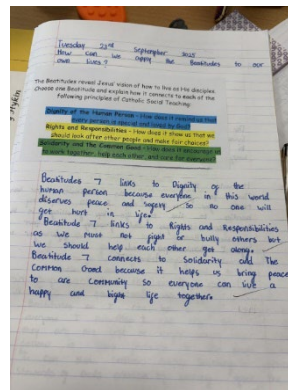 Tuesday 23rd September 2025
How can we apply the Beatitudes to our
own lives?
The Beatitudes reveal Jesus' vision of how to live as His disciples.
Choose one Beatitude and explain how it connects to each of the
following principles of Catholic Social Teaching:
Dignity of the Human Person - How does it remind us that
every person is special and loved by God?
Rights and Responsibilities - How does it show us that we
should look after other people and make fair choices?
Solidarity and the Common Good - How does it encourage us
to work together, help each other, and care for everyone?
Beatitudes 7 links to Dignity of the
human person because everyone in this world
deserves peace and safety so no one will
get hurt in life.
Beatitude 7 links to Rights and Responsibilities
as we must not fight or bully others but
we should help each other get along.
Beatitude 7 connects to Solidarity and The
Common Good because it helps us bring peace
to are community so everyone can live a
happy and bright life together.